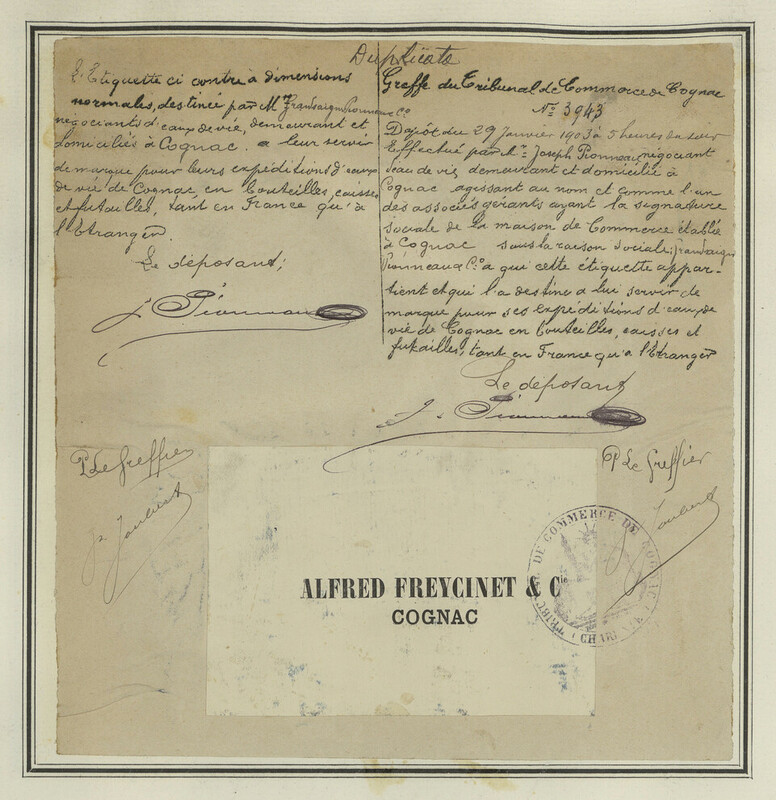 Duplicata
L'Etiquette ci contre à dimensions
normales, destinée par Mrs Frandsaigne Pionneau & Co
négociants d'eaux de vie, demeurant et
domiciliés à Cognac. a leur servir
de marque pour leurs expéditions d'eaux
de vie de Cognac en bouteilles, caisses
et futailles, tant en France qu'à
l'Etranger.
Le déposant;
J. Pionneau
Greffe du Tribunal de Commerce de Cognac
No 3943
Dépôt du 29 Janvier 1903 à 5 heures du soir
Effectué par Mr. Joseph Pionneau, négociant
d'eau de vie demeurant et domicilié à
Cognac agissant au nom et comme l'un
des associés gérants ayant la signature
sociale de la maison de Commerce établie
à Cognac sous la raison sociale;
Pionneau & Co à qui cette étiquette appar-
tient et qui l'a destine a lui servir de
marque pour ses expéditions d'eaux de
vie de Cognac en bouteilles, caisses et
futailles, tant en France qu'a l'Etranger
Le déposant
J. Pionneau
P. Le Greffier
P. Le Greffier
ALFRED FREYCINET & Cie
COGNAC
TRIBAL DE COMMERCE DE COGNAC
(CHARENTE)